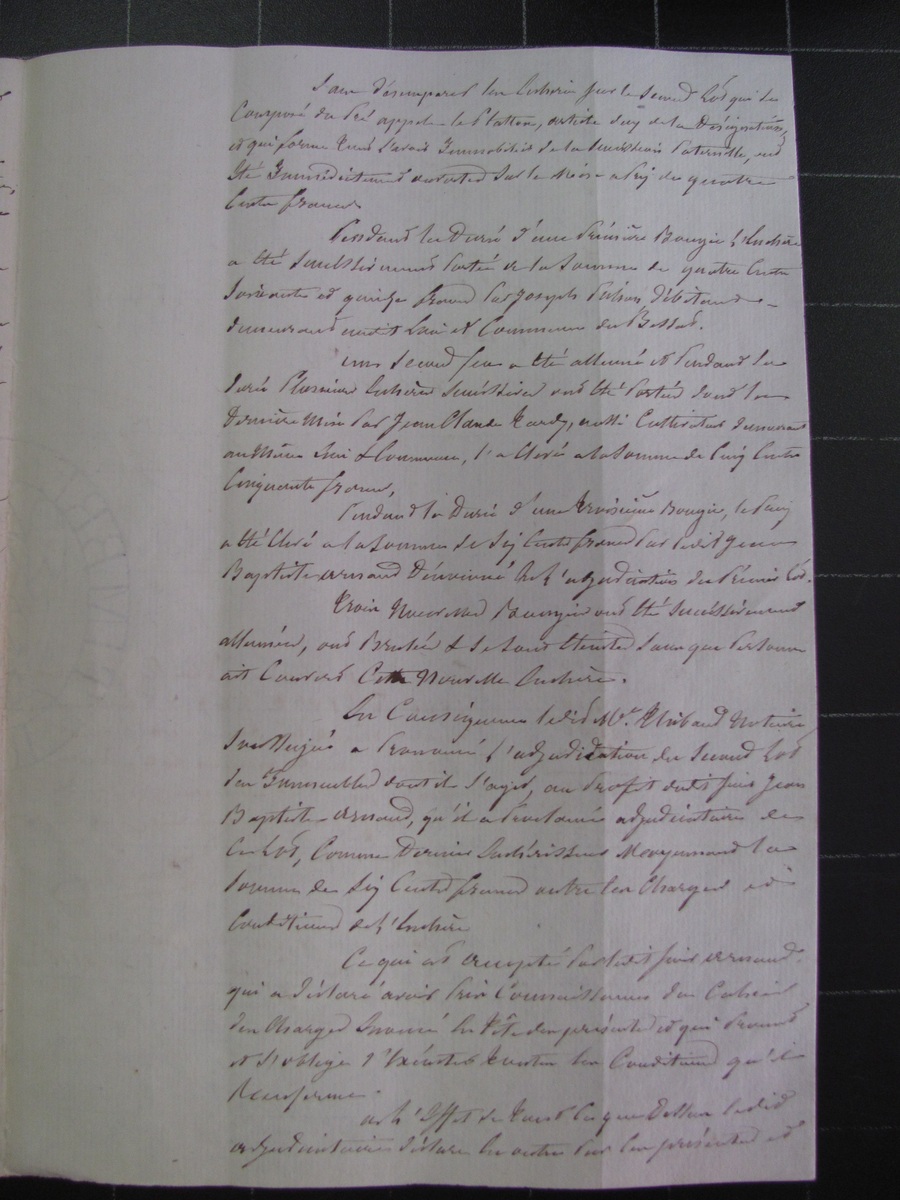 Sans désemparer les Enchères sur le second Lot qui se
Compose du Pré appelé le Platton, article six de la Désignation
et qui forme tout l'avoir Immobilier de la succession Paternelle, ont
été Immédiatement ouvertes sur la mise à prix de quatre
Cents francs.
Pendant la Durée d'une Première Bougie l'Enchère
a été successivement Portée à la Somme de quatre Cents
soixante et quinze francs Par Joseph débitant
demeurant audit Lieu et Commune du Bessat.
une second feu a été allumé et Pendant la
durée Plusieurs Enchères successives ont été Portées dont la
Dernière mise Par Jean Claude Tardy, Cultivateur demeurant
au même Lieu & Commune, l'a élevé à la Somme de Cinq Cents
Cinquante francs,
Pendant la Durée d'une troisième Bougie, le Prix
a été élevé à la Somme de Six Cents francs Par ledit Jean
Baptiste Arnaud Dénommé à l'adjudication du Premier Lot.
Trois Nouvelles Bougies ont été successivement
allumées, ont Brulées & se sont éteintes sans que Personne
ait Couvert Cette Nouvelle Enchère.
En Conséquence ledit Me. Thibaud Notaire
Soussigné a Prononcé l'adjudication du Second Lot
des Immeubles dont il s'agit, au Profit dudit sieur Jean
Baptiste Arnaud, qu'il a Proclamé adjudicataire de
Ce Lot, Comme Dernier Enchérisseur Moyennant la
somme de Six Cents francs outre les Charges et
Conditions de l'Enchère
Ce qui est accepté Par ledit sieur Arnaud
qui a déclaré avoir Pris Connaissance du Cahier
des Charges En Tête des présentes et qui Promet
et s'oblige d'Exécuter toutes les Conditions qu'il
Renferme.
à l'Effet de tout Ce que Dessus ledit
adjudicataire déclare En outre Par les présentes et